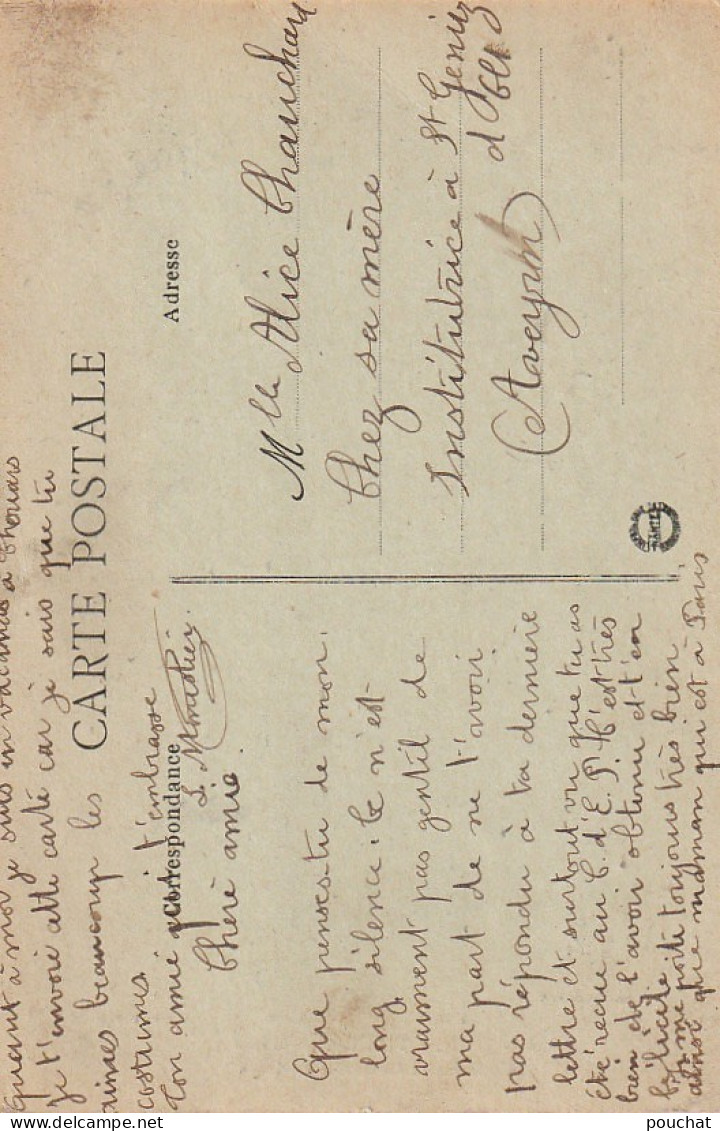 CARTE POSTALE
Correspondance
Adresse
Chère amie.
Que penses-tu de mon
long silence. Ce n'est
vraiment pas gentil de
ma part de ne t'avoir
pas répondu à ta dernière
lettre et surtout vu que tu as
été reçue au C. d'E. P. C'est très
bien de l'avoir obtenu et t'en
félicite
Je me porte toujours très bien
ainsi que maman qui est à Paris
Quant à moi je suis en vacances à Thouars
Je t'envoie cette carte car je sais que tu
aimes beaucoup les
costumes.
Ton amie qui t'embrasse
Mlle Alice Chauchard
Chez sa mère
Institutrice à St Geniez
d'Olt
(Aveyron)
NANTES
www.delcampe.net
pouchat